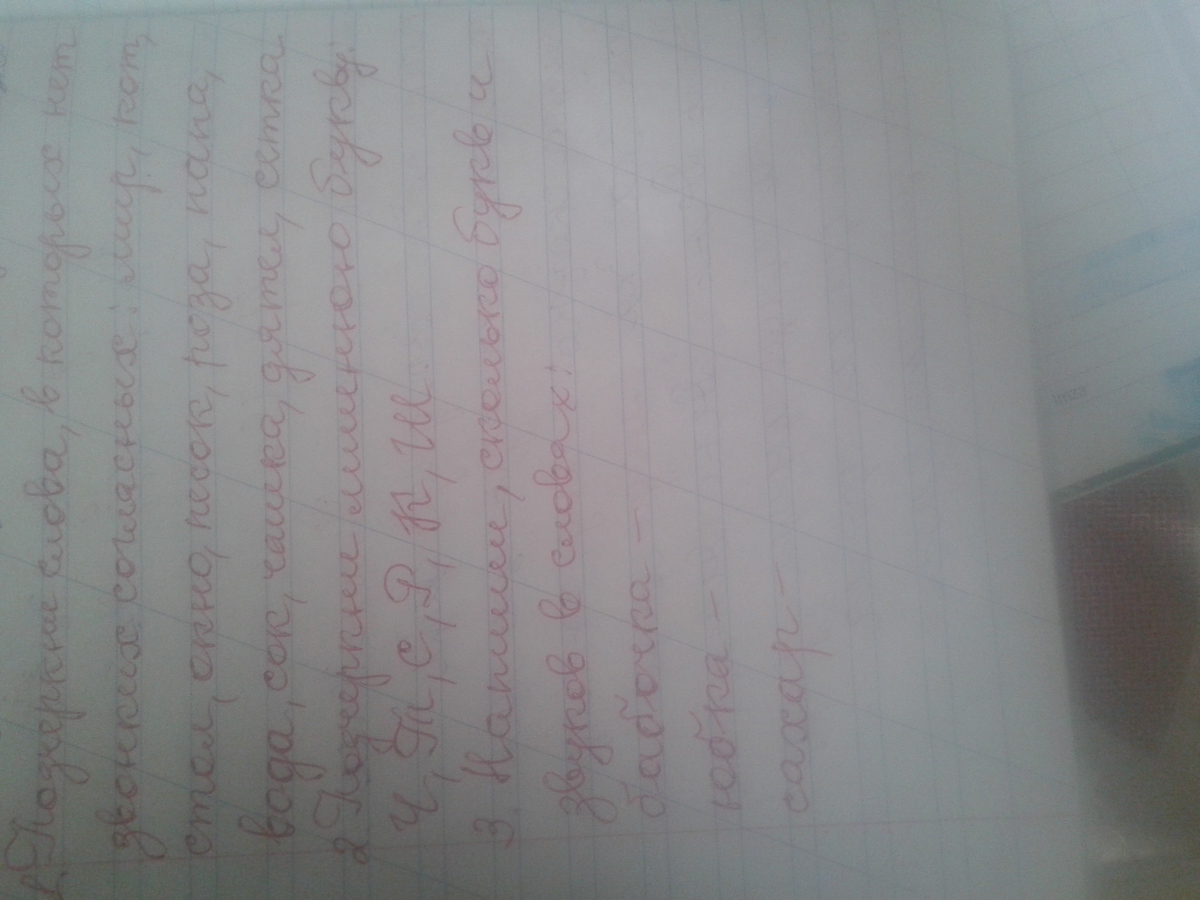 1. Подчеркни слова, в которых нет
звонких согласных: мир, кот,
стол, окно, песок, роза, папа,
вода, сок, чашка, дятел, сетка.
2 Подчеркни лишнюю букву:
Ч, Т, С, Р, К, Ш.
3. Напиши, сколько букв и
звуков в словах:
бабочка -
юбка -
сахар -